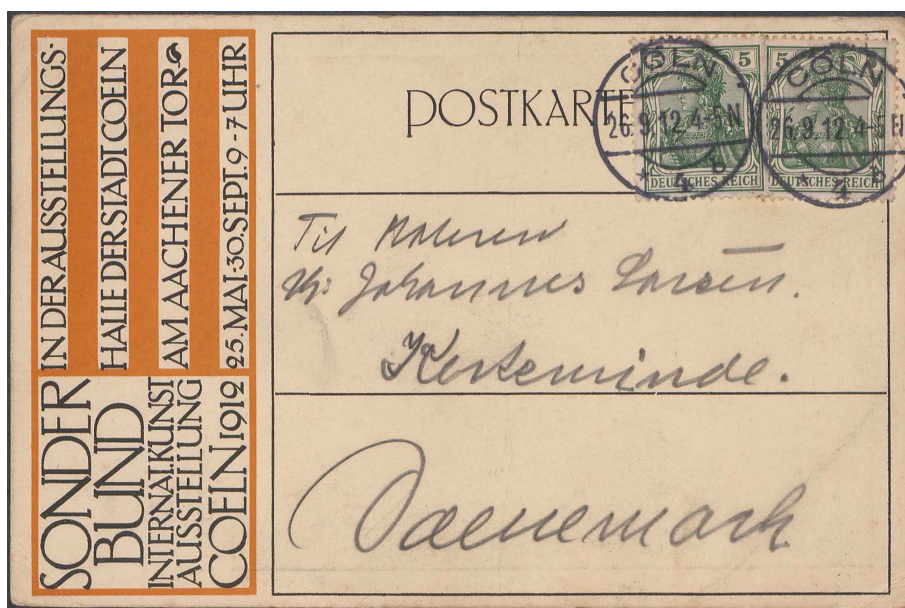 SONDER
BUND
INTERNAT.KUNST
AUSSTELLUNG
COELN 1912
IN DER AUSSTELLUNGS-
HALLE DER STADT COELN
AM AACHENER TOR
25.MAI-30.SEPT.9-7 UHR
POSTKARTE
5 5
DEUTSCHES REICH
CÖLN
26.9.12.4-5N
* 4 b
5
DEUTSCHES REICH
CÖLN
26.9.12.4-5N
Til Maleren
Hr: Johannes Larsen.
Kerteminde.
Daenemark